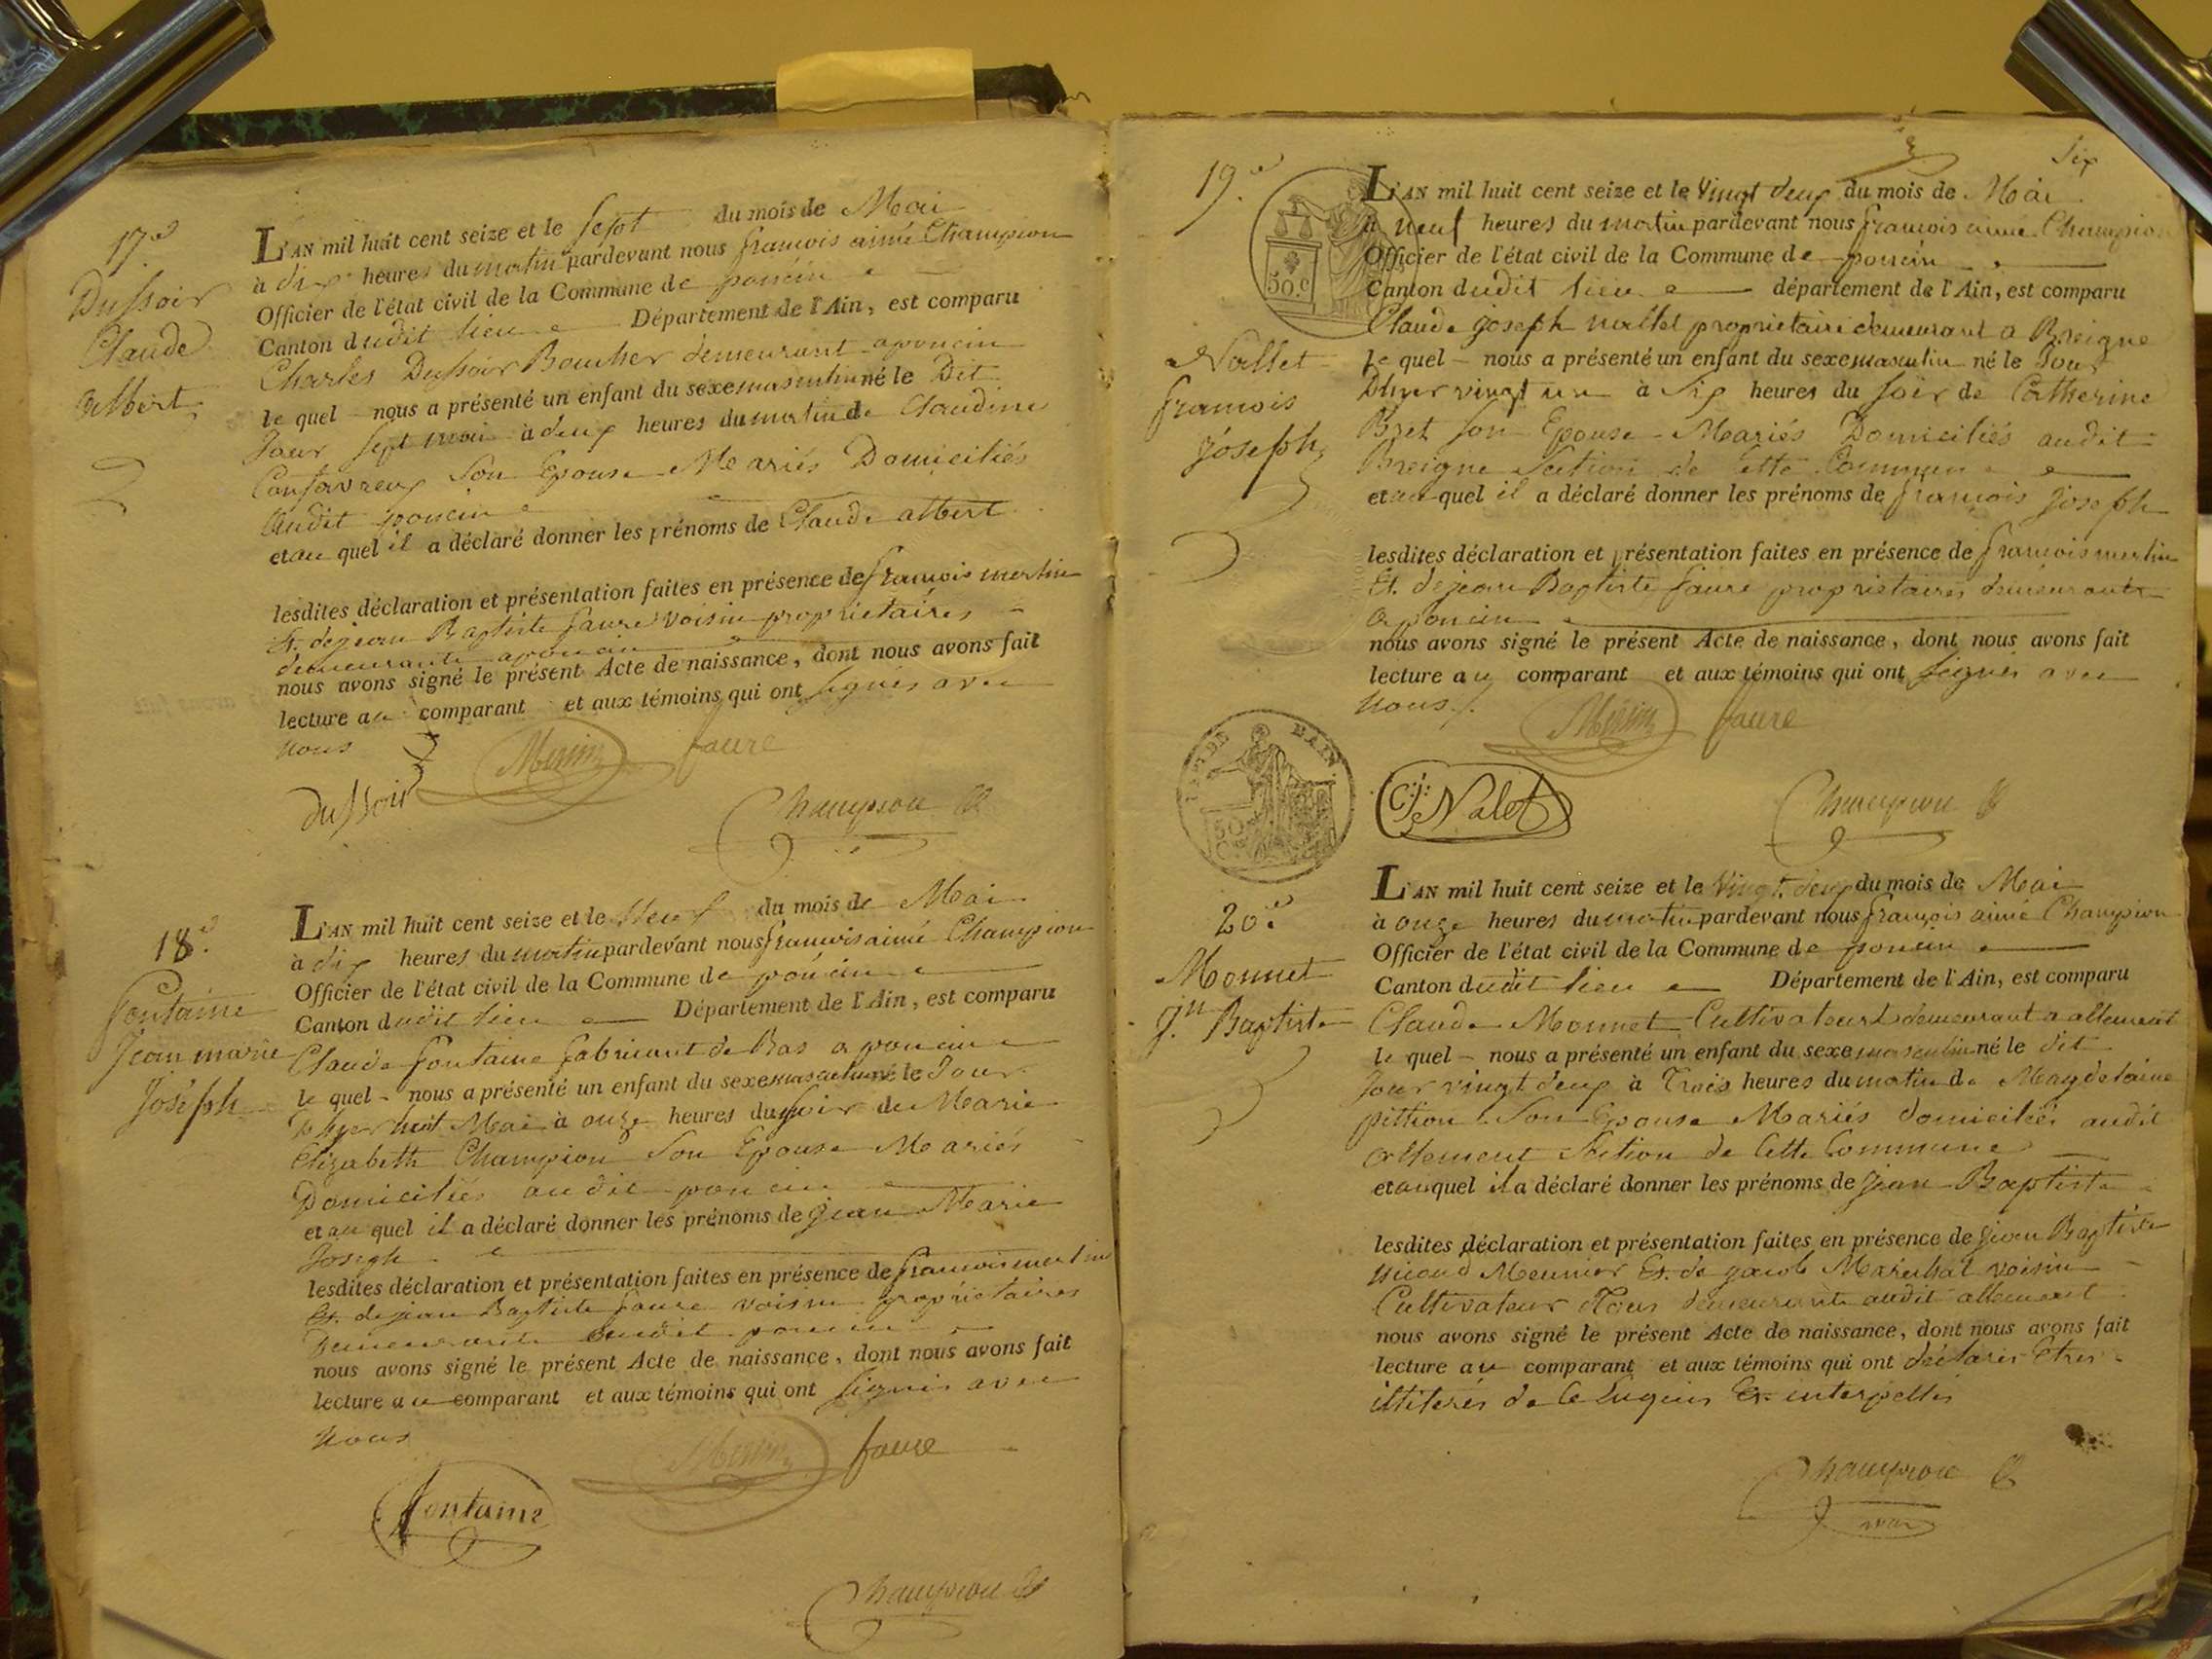 17.e
Dussoir
Claude
albert
L'AN mil huit cent seize et le sept du mois de Mai
à dix heures du matin pardevant nous françois aimé Champion
Officier de l'état civil de la Commune de poncin
Canton dudit lieu Département de l'Ain, est comparu
Charles Dussoir Boucher demeurant a poncin
le quel nous a présenté un enfant du sexe masculin né le Dit
Jour sept mai à deux heures du matin de Claudine
Confavreux Son Epouse Mariés Domiciliés
audit poncin
et au quel il a déclaré donner les prénoms de Claude albert
lesdites déclaration et présentation faites en présence de françois
Et de jean Baptiste faure voisin propriétaires
demeurants a poncin
nous avons signé le présent Acte de naissance, dont nous avons fait
lecture au comparant et aux témoins qui ont signés avec
nous
faure
dussoir
Champion
18.e
fontaine
Jean marie
Joseph
L'AN mil huit cent seize et le Neuf du mois de Mai
à dix heures du matin pardevant nous françois aimé Champion
Officier de l'état civil de la Commune de poncin
Canton dudit lieu Département de l'Ain, est comparu
Claude fontaine fabricant de Bas a poncin
le quel nous a présenté un enfant du sexe masculin né le Jour
D'hyer huit Mai à onze heures du soir de Marie
Elizabeth Champion Son Epouse Mariés
Domiciliés audit poncin
et au quel il a déclaré donner les prénoms de jean Marie
Joseph
lesdites déclaration et présentation faites en présence de françois
Et de jean Baptiste faure voisin propriétaires
Demeurants audit poncin
nous avons signé le présent Acte de naissance, dont nous avons fait
lecture au comparant et aux témoins qui ont signés avec
Nous
faure
fontaine
Champion
Six
19.e
50.c
Nallet
françois
Joseph
L'AN mil huit cent seize et le vingt deux du mois de Mai
à neuf heures du matin pardevant nous françois aimé Champion
Officier de l'état civil de la Commune de poncin
Canton dudit lieu département de l'Ain, est comparu
Claude joseph nallet propriétaire demeurant a Breigne
le quel nous a présenté un enfant du sexe masculin né le Jour
D'hyer vingt un à six heures du soir de Catherine
Bret son Epouse Mariés Domiciliés audit
Breigne Section de cette Commune
et au quel il a déclaré donner les prénoms de françois joseph
lesdites déclaration et présentation faites en présence de françois
Et de jean Baptiste faure propriétaires demeurants
a poncin
nous avons signé le présent Acte de naissance, dont nous avons fait
lecture au comparant et aux témoins qui ont signés avec
nous
faure
C.j. Nalet
Champion
20.e
Monnet
j.n Baptiste
L'AN mil huit cent seize et le vingt deux du mois de Mai
à onze heures du matin pardevant nous françois aimé Champion
Officier de l'état civil de la Commune de poncin
Canton dudit lieu Département de l'Ain, est comparu
Claude Monnet Cultivateur demeurant a allement
le quel nous a présenté un enfant du sexe masculin né le dit
Jour vingt deux à Trois heures du matin de Magdelaine
pittion Son Epouse Mariés domiciliés audit
allement Section de Cette Commune
et au quel il a déclaré donner les prénoms de jean Baptiste
lesdites déclaration et présentation faites en présence de jean Baptiste
Meunier Et de jacob Maréchal voisin
Cultivateur Tous demeurants audit allement
nous avons signé le présent Acte de naissance, dont nous avons fait
lecture au comparant et aux témoins qui ont déclarés êtres
illitérés de ce Enquis Et interpellés
Champion